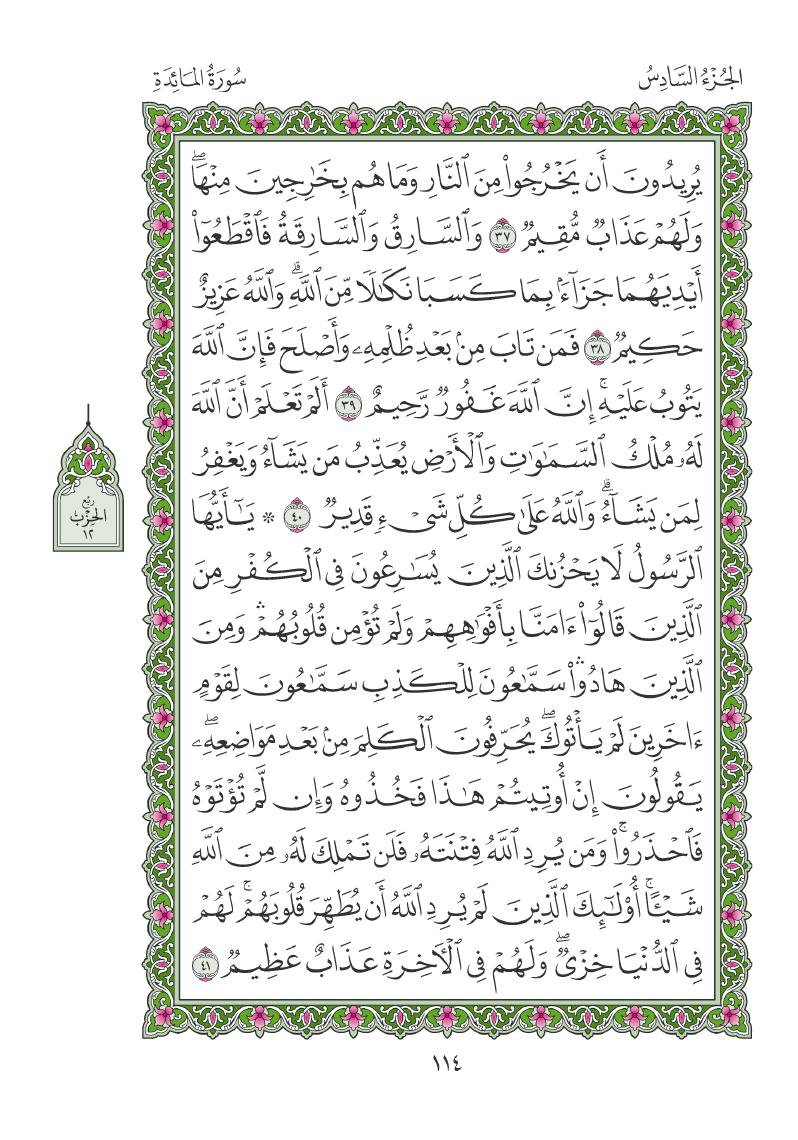 الجُزْءُ السَّادِسُ
سُورَةُ المَائِدَةِ
يُرِيدُونَ أَن يَخْرُجُوا۟ مِنَ ٱلنَّارِ وَمَا هُم بِخَٰرِجِينَ مِنْهَاۖ
وَلَهُمْ عَذَابٌ مُّقِيمٌ ٣٧ وَٱلسَّارِقُ وَٱلسَّارِقَةُ فَٱقْطَعُوٓا۟
أَيْدِيَهُمَا جَزَآءَۢ بِمَا كَسَبَا نَكَٰلًا مِّنَ ٱللَّهِۗ وَٱللَّهُ عَزِيزٌ
حَكِيمٌ ٣٨ فَمَن تَابَ مِنۢ بَعْدِ ظُلْمِهِۦ وَأَصْلَحَ فَإِنَّ ٱللَّهَ
يَتُوبُ عَلَيْهِۚ إِنَّ ٱللَّهَ غَفُورٌ رَّحِيمٌ ٣٩ أَلَمْ تَعْلَمْ أَنَّ ٱللَّهَ
لَهُۥ مُلْكُ ٱلسَّمَٰوَٰتِ وَٱلْأَرْضِ يُعَذِّبُ مَن يَشَآءُ وَيَغْفِرُ
لِمَن يَشَآءُۗ وَٱللَّهُ عَلَىٰ كُلِّ شَىْءٍ قَدِيرٌ ٤٠ * يَٰٓأَيُّهَا
ٱلرَّسُولُ لَا يَحْزُنكَ ٱلَّذِينَ يُسَٰرِعُونَ فِى ٱلْكُفْرِ مِنَ
ٱلَّذِينَ قَالُوٓا۟ ءَامَنَّا بِأَفْوَٰهِهِمْ وَلَمْ تُؤْمِن قُلُوبُهُمْۛ وَمِنَ
ٱلَّذِينَ هَادُوا۟ۛ سَمَّٰعُونَ لِلْكَذِبِ سَمَّٰعُونَ لِقَوْمٍ
ءَاخَرِينَ لَمْ يَأْتُوكَۖ يُحَرِّفُونَ ٱلْكَلِمَ مِنۢ بَعْدِ مَوَاضِعِهِۦۖ
يَقُولُونَ إِنْ أُوتِيتُمْ هَٰذَا فَخُذُوهُ وَإِن لَّمْ تُؤْتَوْهُ
فَٱحْذَرُوا۟ۚ وَمَن يُرِدِ ٱللَّهُ فِتْنَتَهُۥ فَلَن تَمْلِكَ لَهُۥ مِنَ ٱللَّهِ
شَيْـًٔاۚ أُو۟لَٰٓئِكَ ٱلَّذِينَ لَمْ يُرِدِ ٱللَّهُ أَن يُطَهِّرَ قُلُوبَهُمْۚ لَهُمْ
فِى ٱلدُّنْيَا خِزْىٌۖ وَلَهُمْ فِى ٱلْءَاخِرَةِ عَذَابٌ عَظِيمٌ ٤١
رُبُعُ
الحِزْبِ
١٢
١١٤